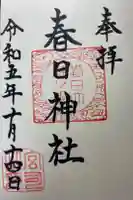 奉拝
春日神社
令和五年十月十四日